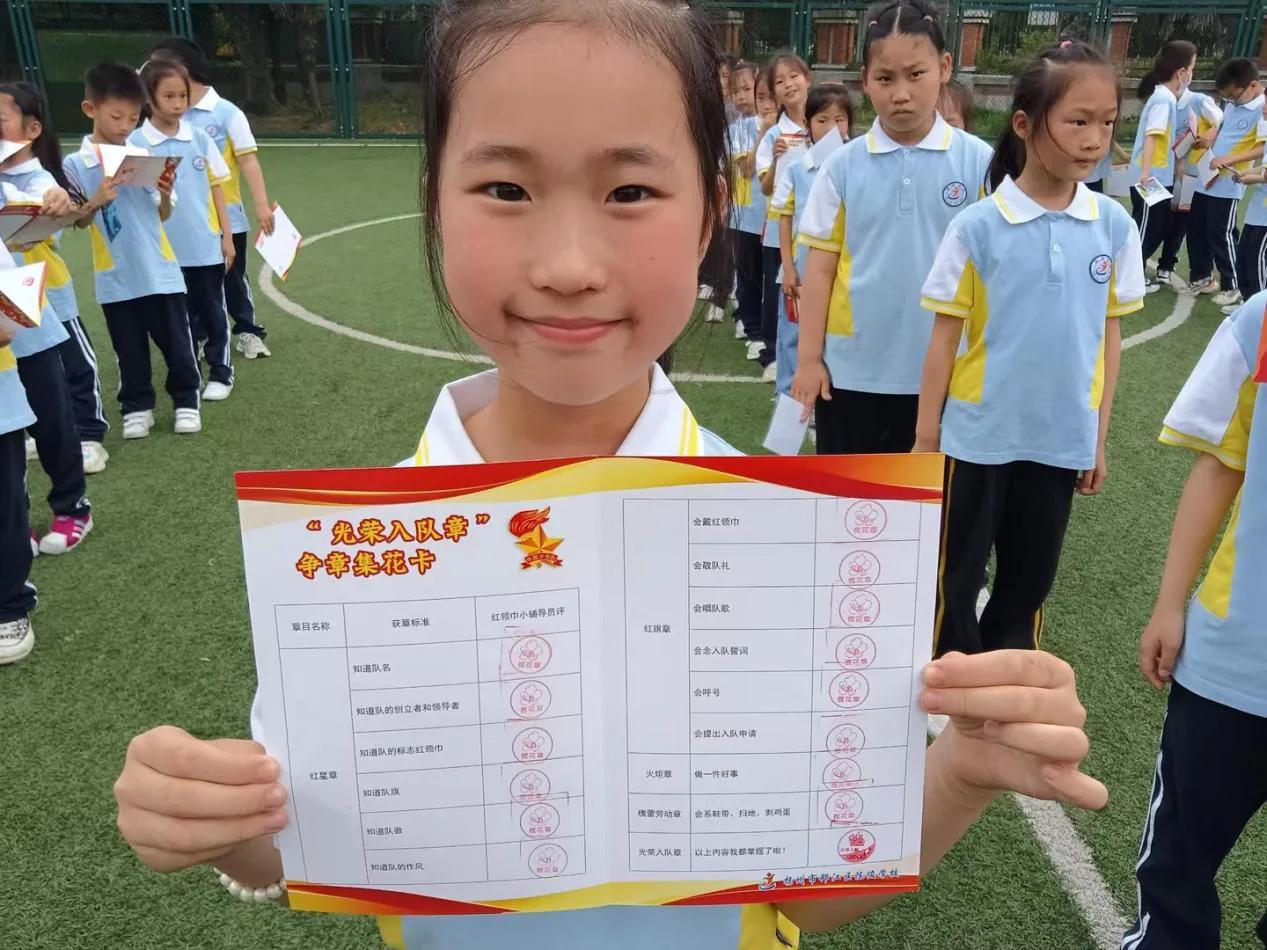 “光荣入队章”
争章集花卡
章目名称 获章标准 红领巾小辅导员评
红星章
知道队名 槐花章
知道队的创立者和领导者 槐花章
知道队的标志红领巾 槐花章
知道队旗
知道队徽 槐花章
知道队的作风 槐花章
红旗章
会戴红领巾 槐花章
会敬队礼 槐花章
会唱队歌 槐花章
会念入队誓词 槐花章
会呼号 槐花章
会提出入队申请 槐花章
火炬章 做一件好事
槐蕾劳动章 会系鞋带、扫地、剥鸡蛋 槐花章
光荣入队章 以上内容我都掌握了啦！
扬州市邗江区陈俊学校